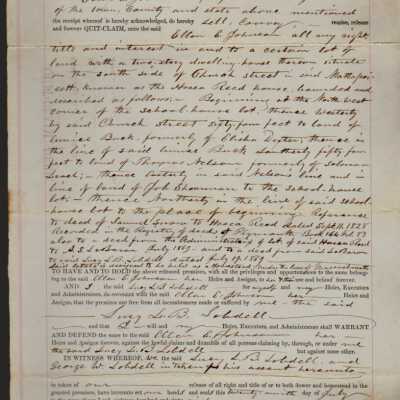 of the town, County and state above mentioned
the receipt whereof is hereby acknowledged, do hereby sell, Convey, remise, release
and forever QUIT-CLAIM, unto the said
Ellen C Johnson all my right
title and interest in and to a certain lot of
land with a two-story dwelling-house thereon situate
on the south side of Church street in said Mattapoi-
sett, known as the Hosea Reed house, bounded and
described as follows:- Beginning at the North west
corner of the school-house lot, thence Westerly
by said Church street sixty-four feet to land of
Eunice Buck, formerly of Elisha Dexter; thence in
the line of said Eunice Buck Southerly fifty-four
feet to land of Thomas Nelson formerly of Solomon
- thence Easterly in said Nelson's line and in
line of land of Job Sherman to the school-house
lot, - thence Northerly in the line of said school-
house lot to the place of beginning. Reference
to deed of Samuel to Hosea Reed dated Sept 11. 1828
Recorded in the Registry of deeds at Plymouth Book 166
also to a deed from the Administratrix of Est. of said Hosea Reed
to A. L. LeBaron July 1869 and to a deed from said LeBaron
to said Lucy L. B. Lobdell dated July 19 1869
TO HAVE AND TO HOLD the above released premises, with all the privileges and appurtenances to the same belong-
ing to the said Ellen C Johnson her Heirs and Assigns, to her use and behoof forever.
AND I the said Lucy L B Lobdell for myself and my Heirs, Executors
and Administrators, do covenant with the said Ellen C Johnson her Heirs and
Assigns, that the premises are free from all incumbrances made or suffered by me the said
Lucy L B Lobdell
and that I will and my Heirs, Executors, and Administrators shall WARRANT
AND DEFEND the same to the said Ellen C Johnson her
Heirs and Assigns forever, against the lawful claims and demands of all persons claiming by, through, or under me
the said Lucy L B Lobdell but against none other.
IN WITNESS WHEREOF, We the said Lucy L B Lobdell, and
George W. Lobdell in token of his assent hereunto
in token of our release of all right of or to both dower and homestead in the
granted premises, have hereunto set our hands and seals this twenty ninth day of July